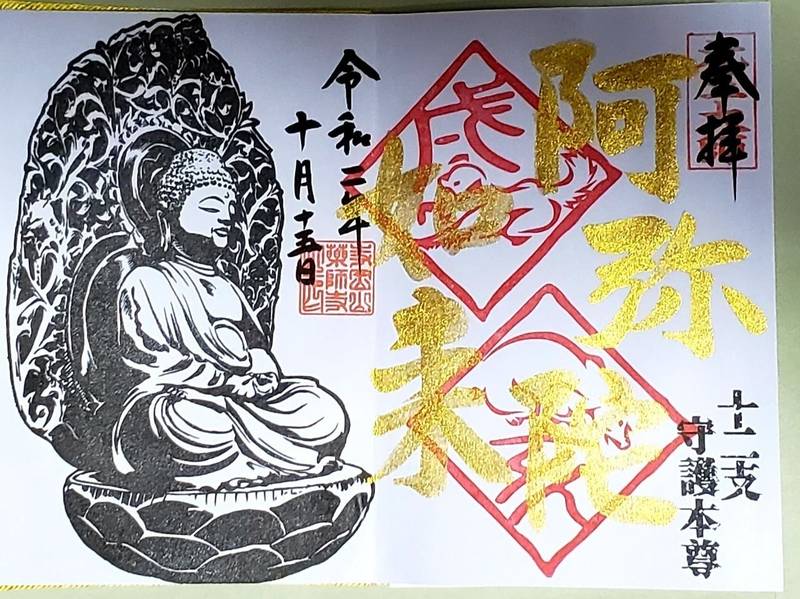 奉拝
十二支
守護本尊
阿弥陀
如来
戌
令和三年
十月十五日
薬師寺